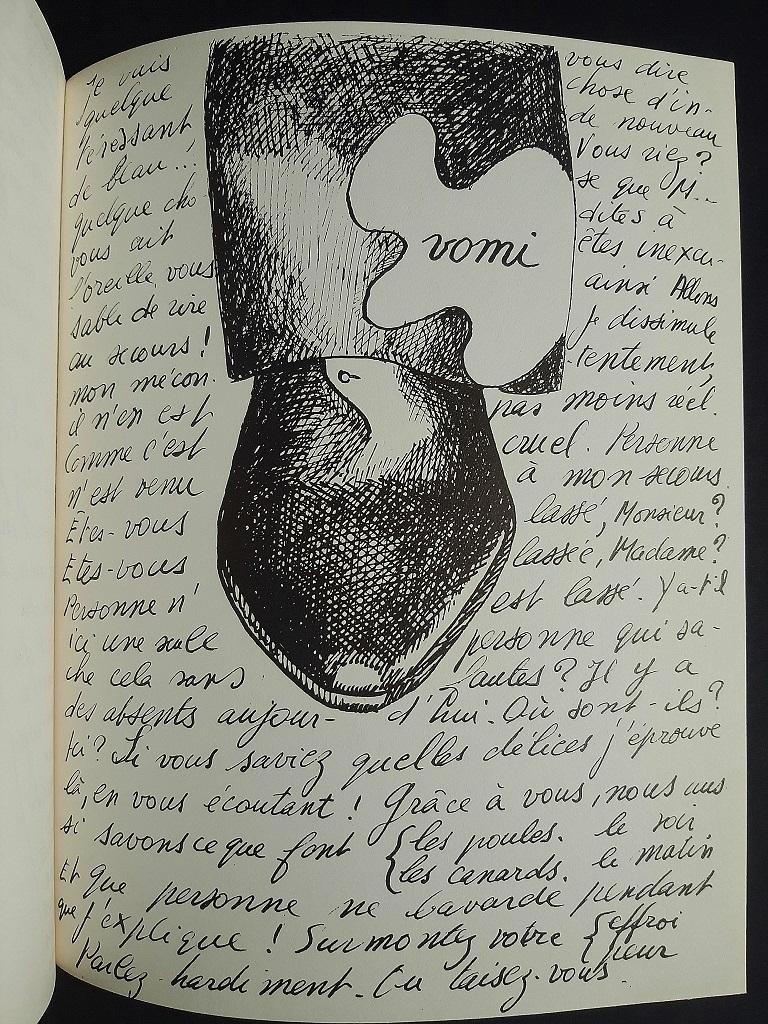 Je vais vous dire
quelque chose d'in-
téressant de nouveau
de beau... Vous riez?
quelque cho se que M...
vous ait dites à
l'oreille, vous êtes inexcu-
sable de rire ainsi Allons
au secours! je dissimule
mon mécon- tentement,
il n'en est pas moins réel.
Comme c'est cruel. Personne
n'est venu à mon secours.
Êtes-vous lassé, Monsieur?
Etes-vous lassée, Madame?
Personne n' est lassé. Y a-t-il
ici une seule personne qui sa-
che cela sans fautes? Il y a
des absents aujour- d'hui. Où sont-ils?
Ici? Si vous saviez quelles délices j'éprouve
là, en vous écoutant! Grâce à vous, nous aus
si savons ce que font { les poules. le soir
les canards. le matin
Et que personne ne bavarde pendant
que j'explique! Surmontez votre { effroi
peur
Parlez hardiment. Ou taisez-vous.
vomi